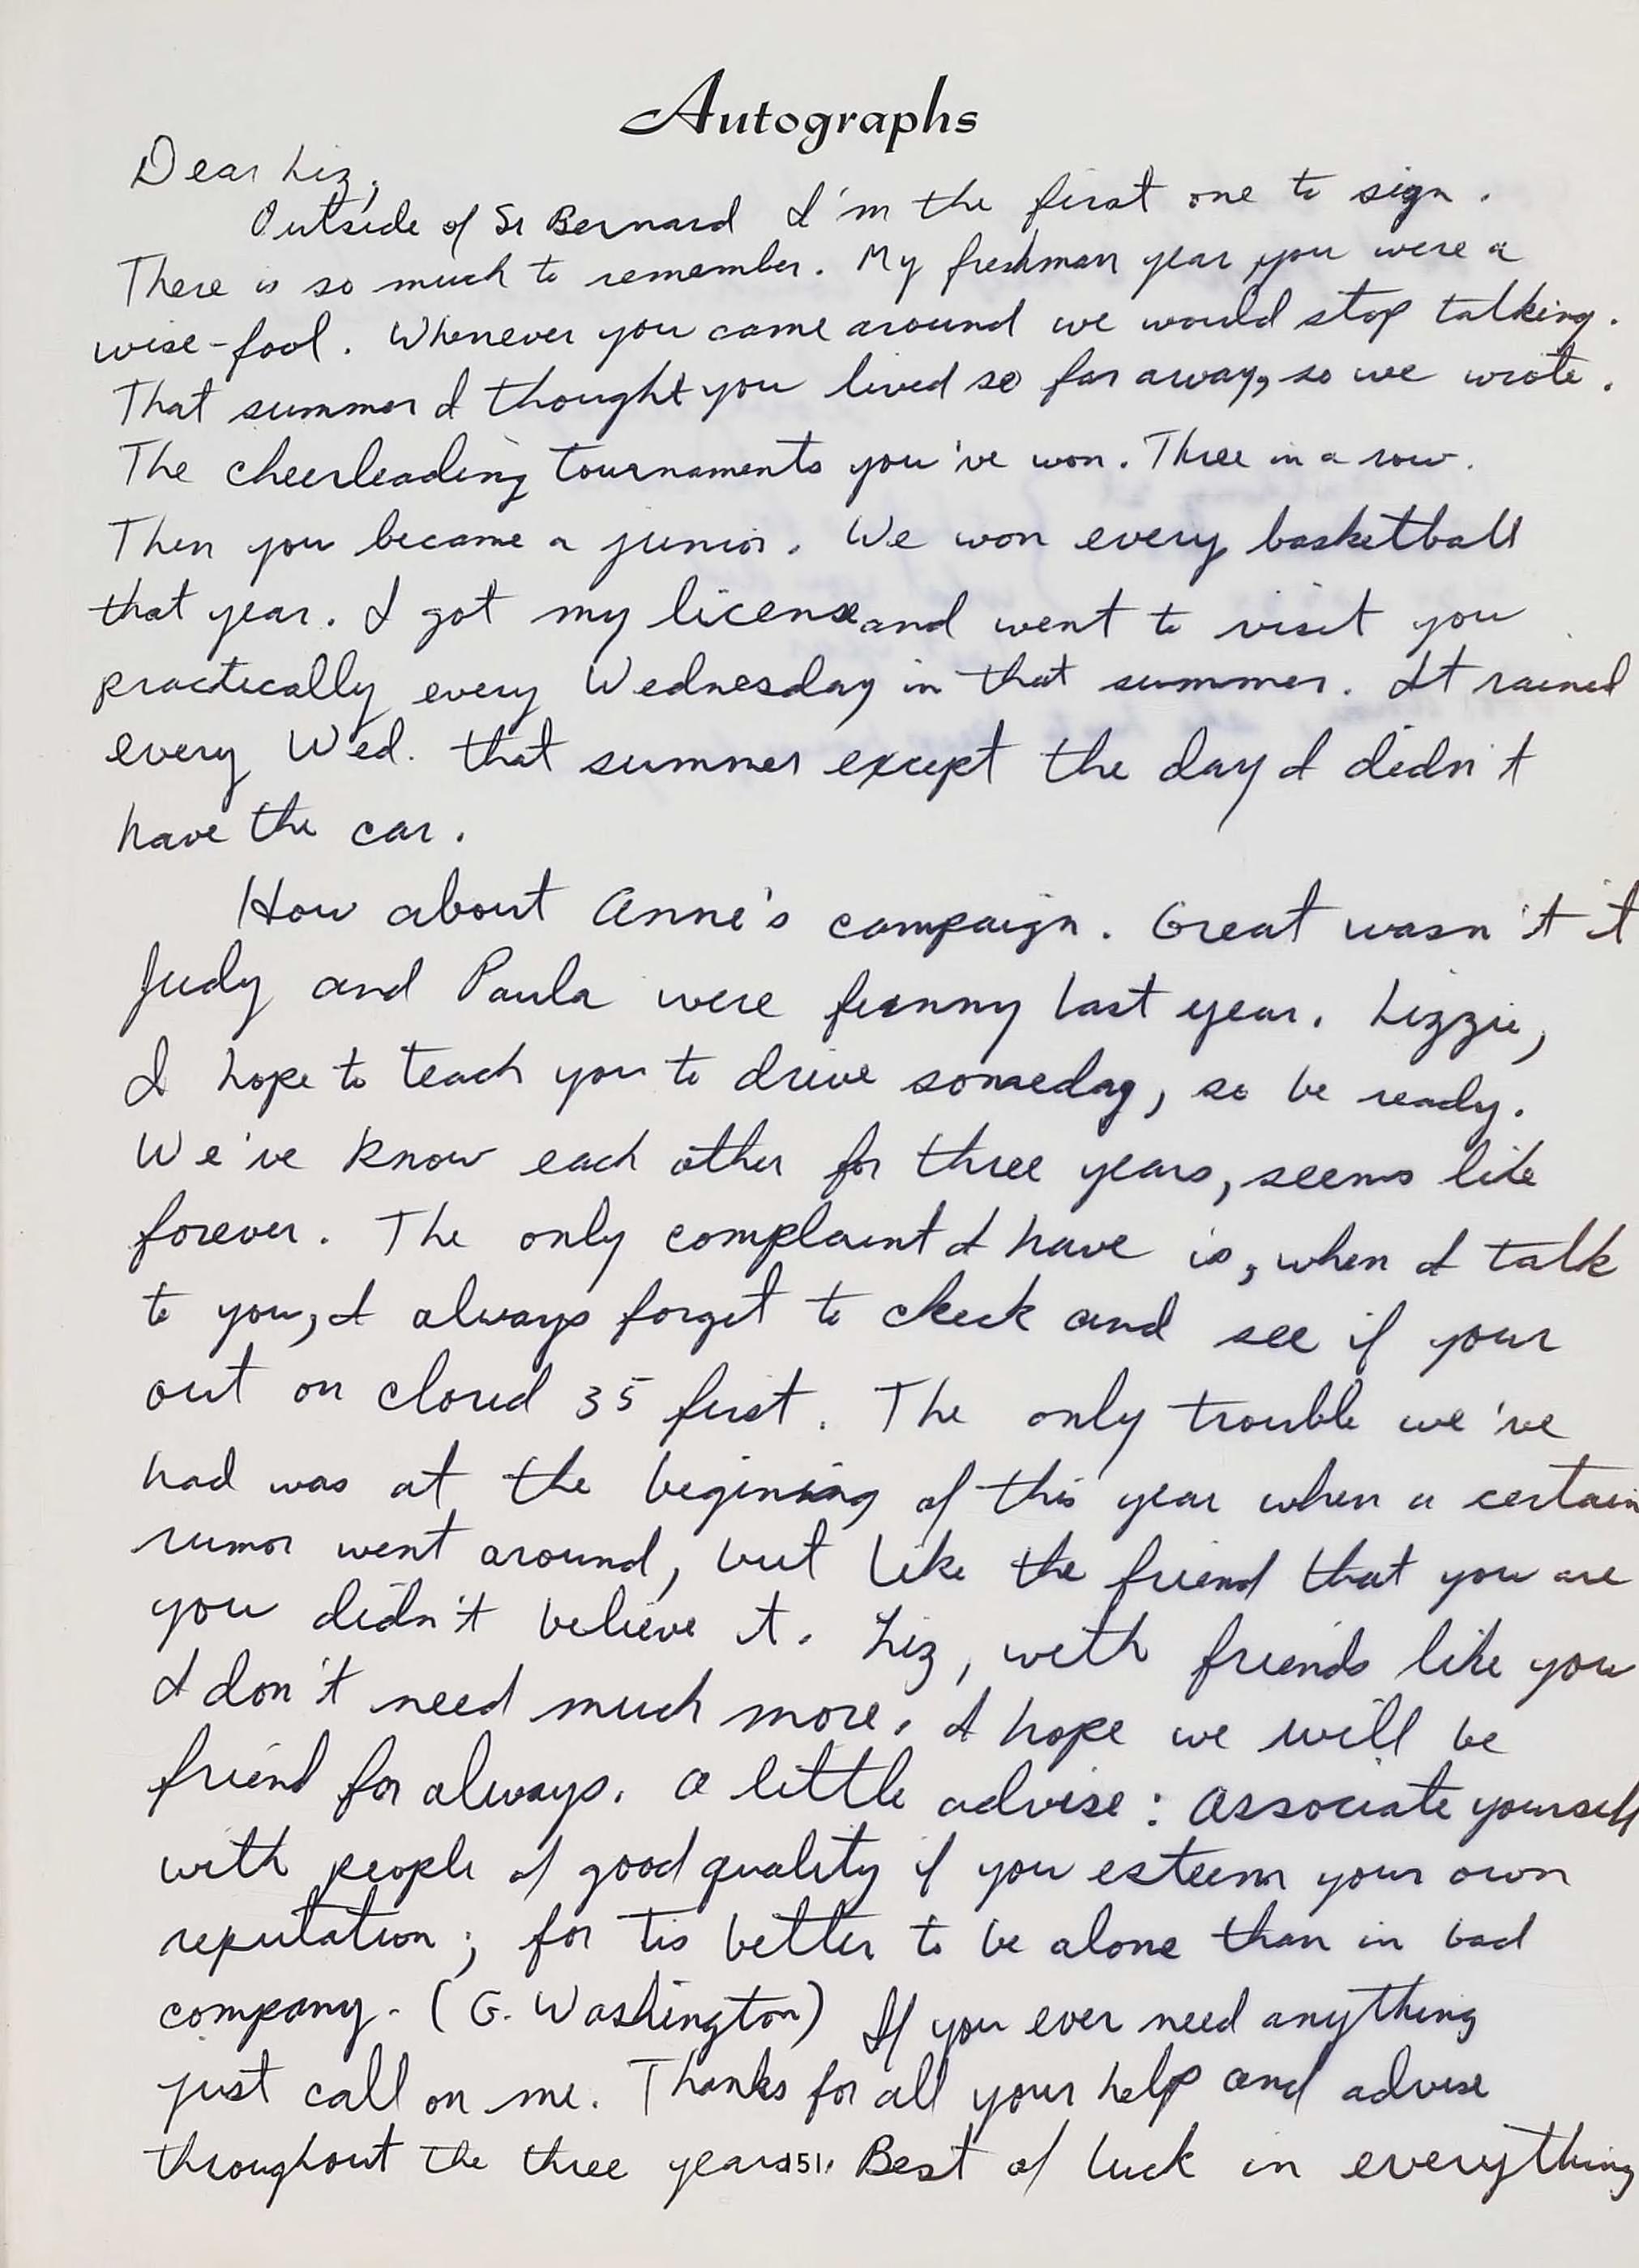 Autographs
Dear Liz,
Outside of Sr Bernard I'm the first one to sign.
There is so much to remember. My freshman year, you were a
wise-fool. Whenever you came around we would stop talking.
That summer I thought you lived so far away, so we wrote.
The cheerleading tournaments you've won. Three in a row.
Then you became a junior. We won every basketball
that year. I got my license and went to visit you
practically every Wednesday in that summer. It rained
every Wed. that summer except the day I didn't
have the car.
How about Anne's campaign. Great wasn't it
Judy and Paula were funny last year. Lizzie,
I hope to teach you to drive someday, so be ready.
We've know each other for three years, seems like
forever. The only complaint I have is, when I talk
to you, I always forget to check and see if your
out on cloud 35 first. The only trouble we've
had was at the begining of this year when a certain
rumor went around, but like the friend that you are
you didn't believe it. Liz, with friends like you
I don't need much more. I hope we will be
friend for always. A little advise: Associate yourself
with people of good quality if you esteem your own
reputation; for tis better to be alone than in bad
company. (G. Washington) If you ever need anything
just call on me. Thanks for all your help and advise
throughout the three years. Best of luck in everything
151